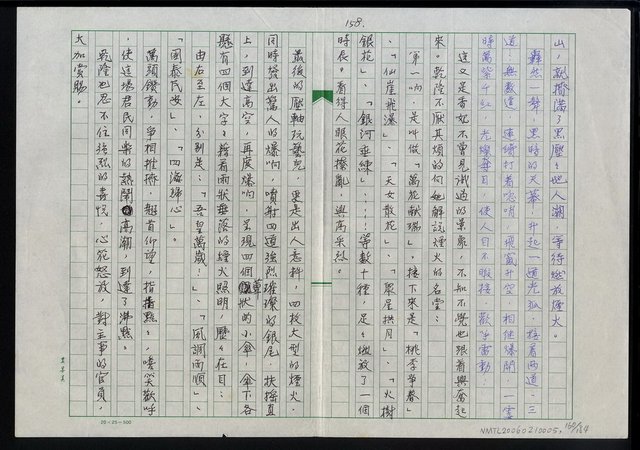 158.
出，就擠滿了黑壓壓地人潮，等待燃放煙火。
轟然一聲，黑暗的天幕，升起一道光弧，接著兩道、三
道、無數道，連續打著唿哨，飛竄升空，相繼爆開，一霎
時萬紫千紅，光耀奪目，使人目不暇接，歡呼雷動。
這又是香妃不曾見識過的景象，不知不覺也跟着興奮起
來。乾隆不厭其煩的向她解說煙火的名堂：
第一响，是叫做「萬花獻瑞」，接下來是「桃李爭春」
、「仙崖飛瀑」、「天女散花」、「眾星拱月」、「火樹
銀花」、「銀河垂練」……等數十種，足足燃放了一個
時辰。看得人眼花撩亂，興高采烈。
最後的壓軸玩藝兒，更是出人意料，四枚大型的煙火，
同時發出驚人的爆响，噴射四道強烈璀璨的銀尾，扶搖直
上，到達高空，再度爆响，呈現四個蕈狀的小傘，傘下各
懸有四個大字，藉着雨狀垂落的煙火照明，歷歷在目：
由右至左，分別是：「吾皇萬歲」、「風調雨順」、
「國泰民安」、「四海歸心」。
萬頭鑽動，爭相推擠，翹首仰望，指指點點，嘻笑歡呼
，使這場君民同樂的熱鬧高潮，到達了沸點。
乾隆也忍不住強烈的喜悅，心花怒放，對主事的官員，
大加賞賜。
20×25=500
NMTL20060210005, 160/184